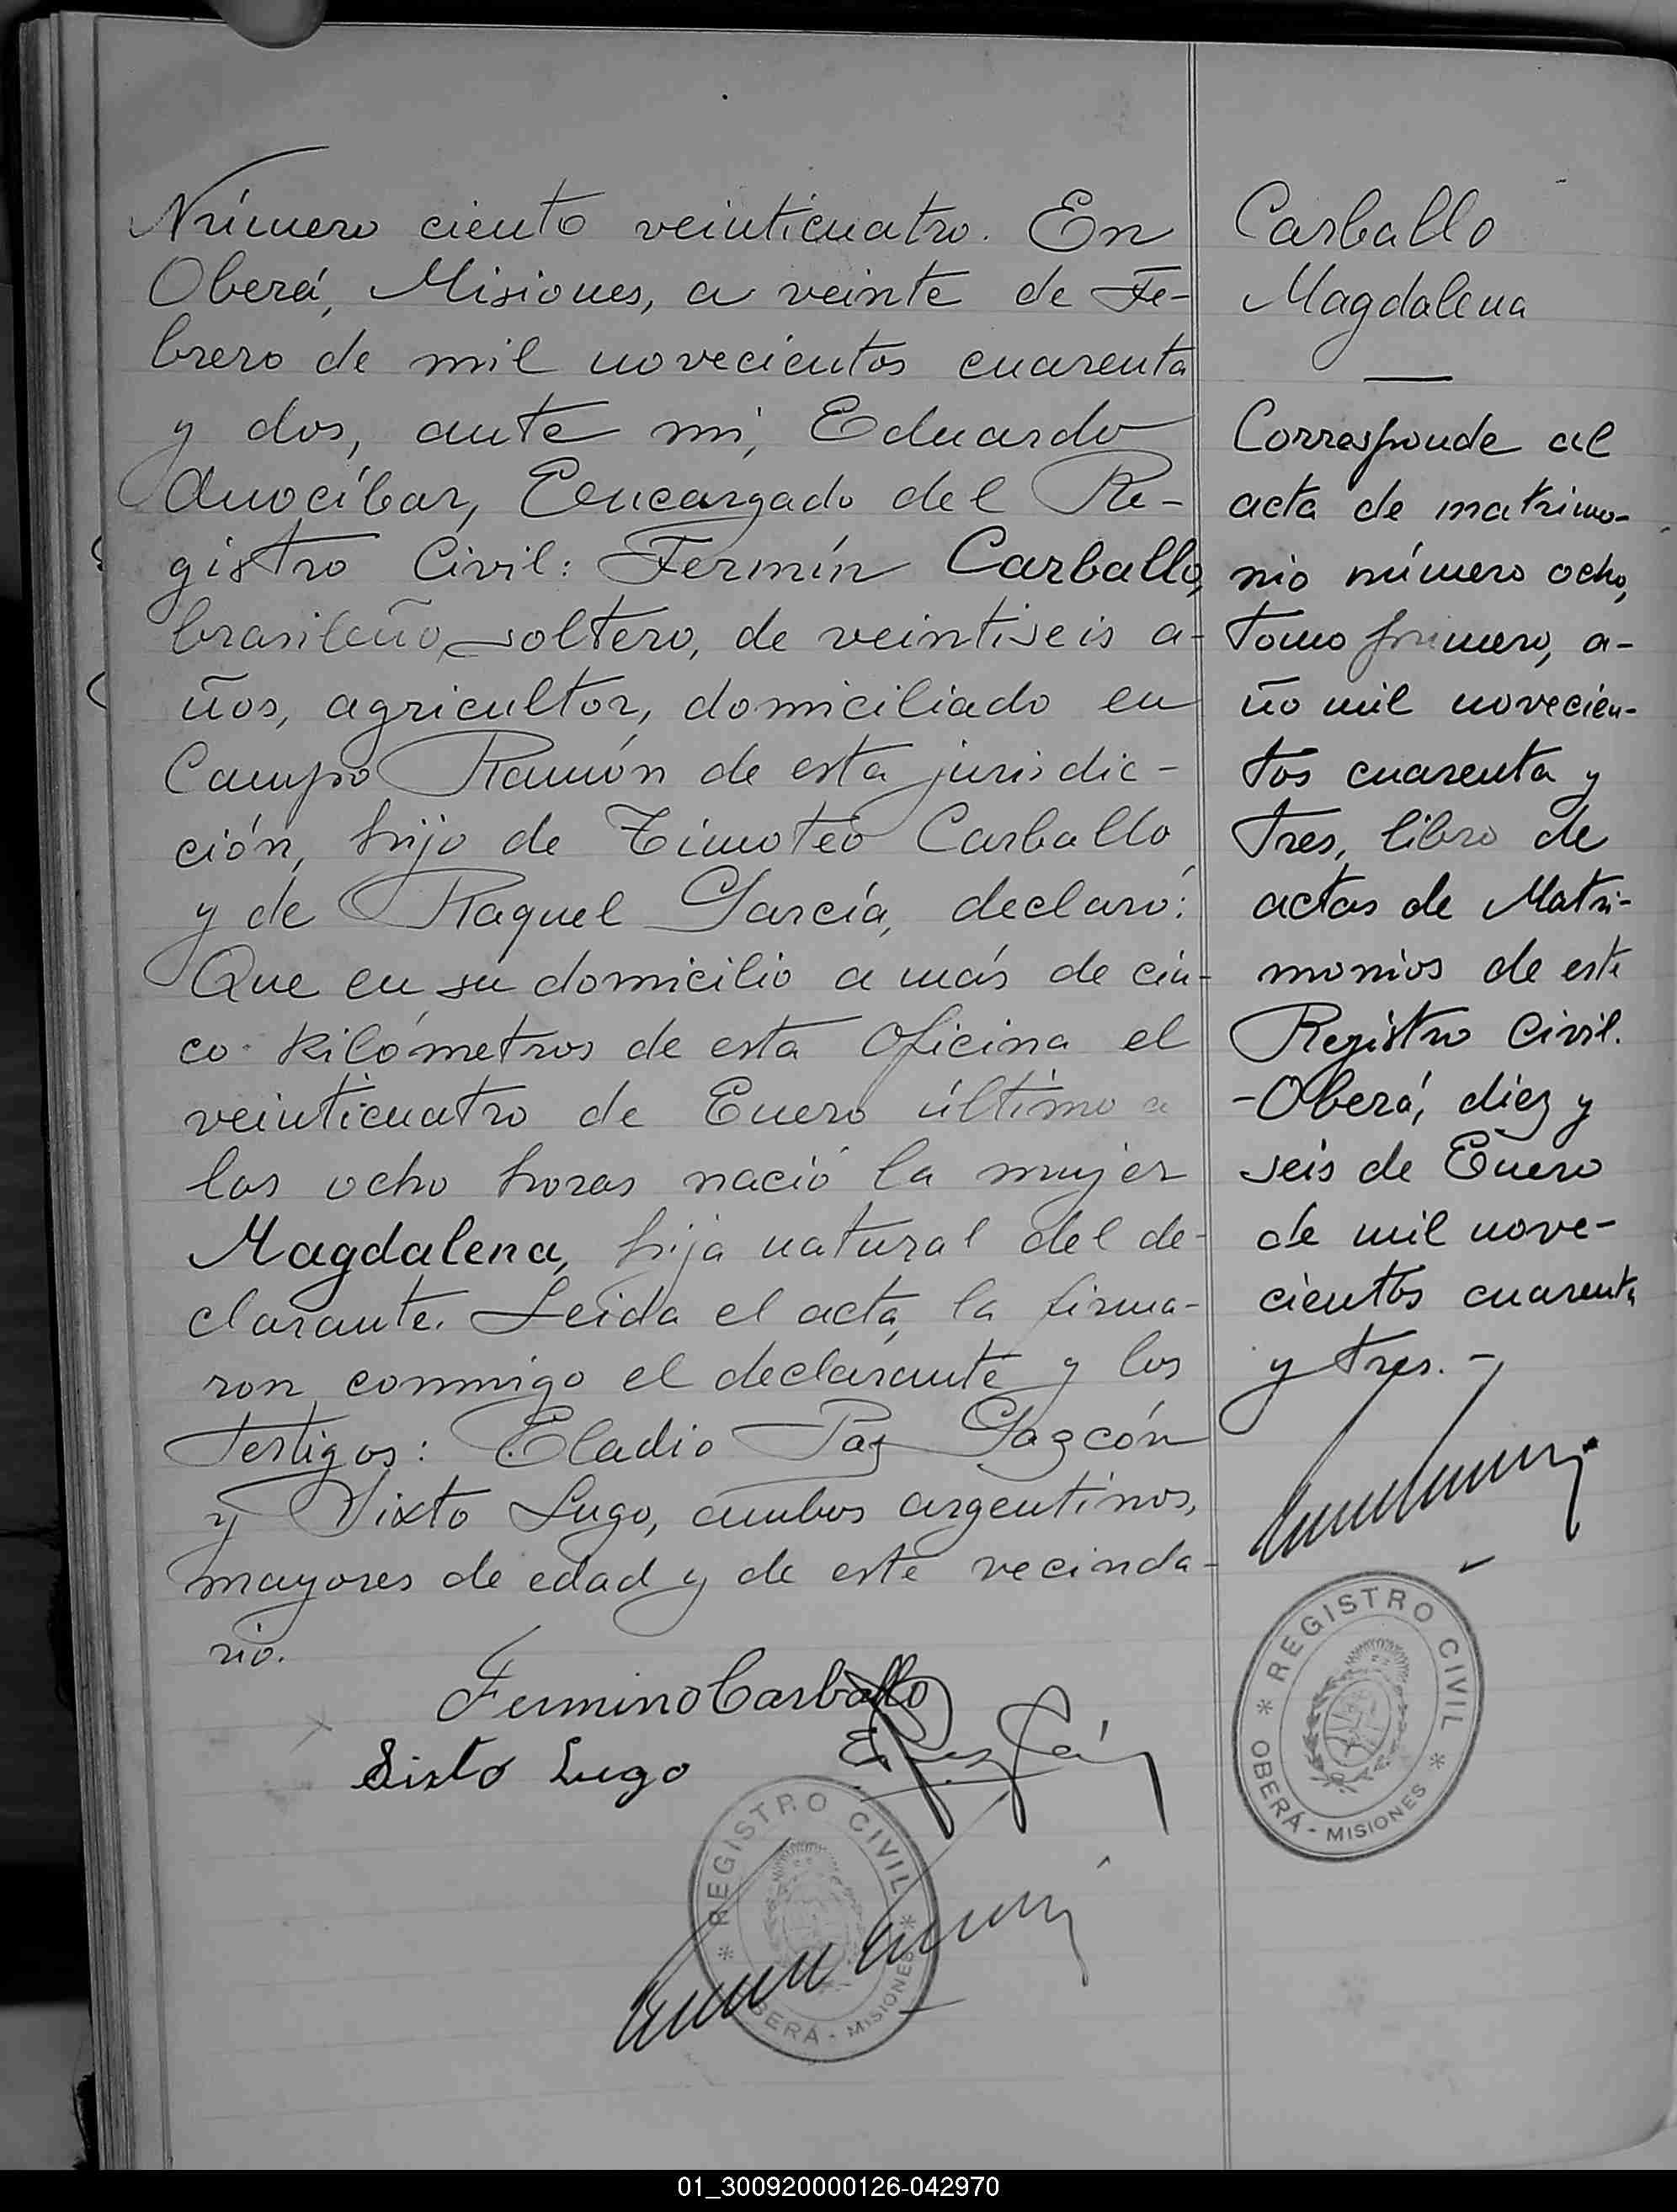 Número ciento veinticuatro. En
Oberá, Misiones, a veinte de Fe-
brero de mil novecientos cuarenta
y dos, ante mi, Eduardo
Anocíbar, Encargado del Re-
gistro Civil: Fermín Carballo,
brasileño, soltero, de veintiseis a-
ños, agricultor, domiciliado en
Campo Ramón de esta jurisdic-
ción, hijo de Timoteo Carballo
y de Raquel García, declaró:
Que en su domicilio a más de cin-
co kilómetros de esta Oficina el
veinticuatro de Enero último a
las ocho horas nació la mujer
Magdalena, hija natural del de-
clarante. Leida el acta, la firma-
ron conmigo el declarante y los
testigos: Eladio Paz Gazcón
y Sixto Lugo, ambos argentinos,
mayores de edad y de este vecinda-
rio.
Fermino Carballo
Sixto Lugo
REGISTRO CIVIL
OBERÁ - MISIONES
Carballo
Magdalena
Corresponde al
acta de matrimo-
nio número ocho,
tomo primero, a-
ño mil novecien-
tos cuarenta y
tres, libro de
actas de Matri-
monios de este
Registro Civil.
-Oberá, diez y
seis de Enero
de mil nove-
cientos cuarenta
y tres.-
REGISTRO CIVIL
OBERÁ - MISIONES
01_300920000126-042970